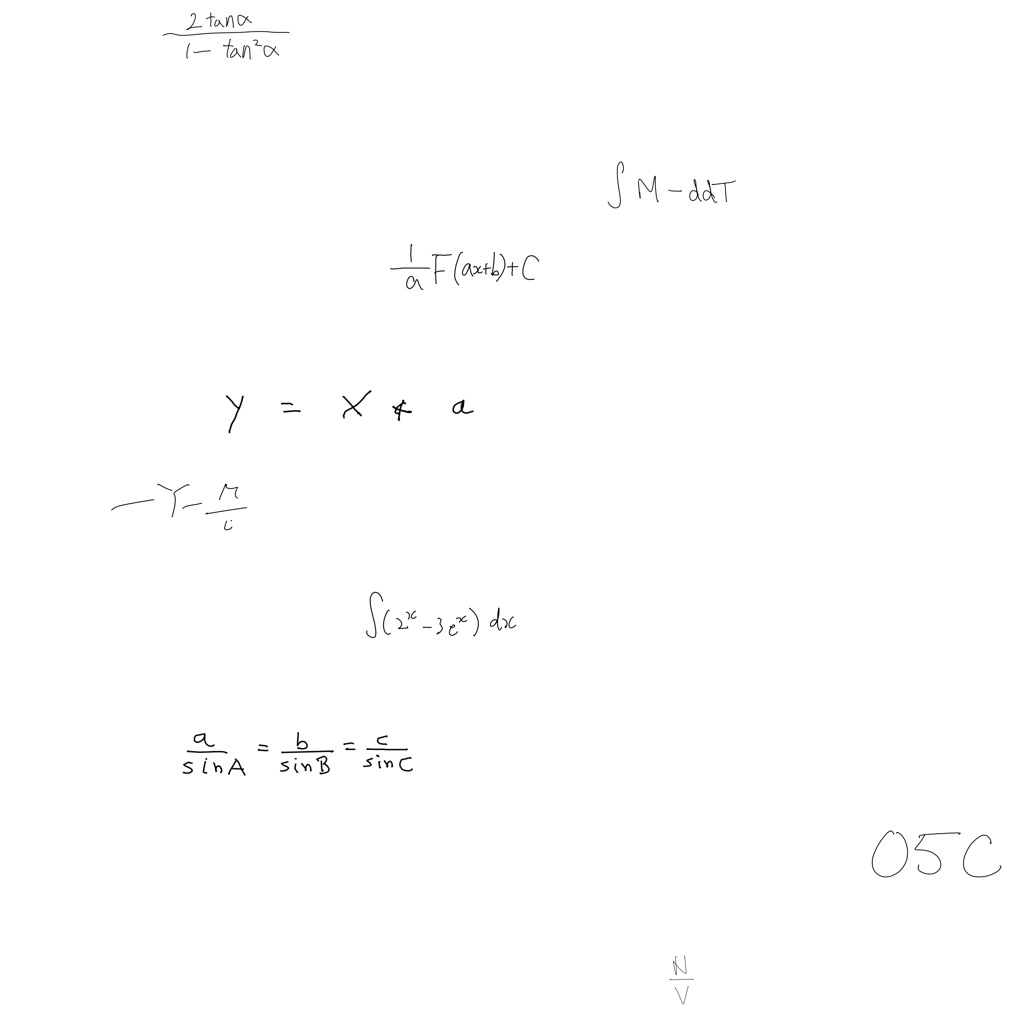 \frac{2\tan\alpha}{1-\tan^2\alpha}
\int M-ddT
\frac{1}{a}F(ax+b)+C
y = X * a
-Y-\frac{M}{i}
\int(2^x-3e^x)dx
\frac{a}{\sin A}=\frac{b}{\sin B}=\frac{c}{\sin C}
05C
\frac{N}{V}